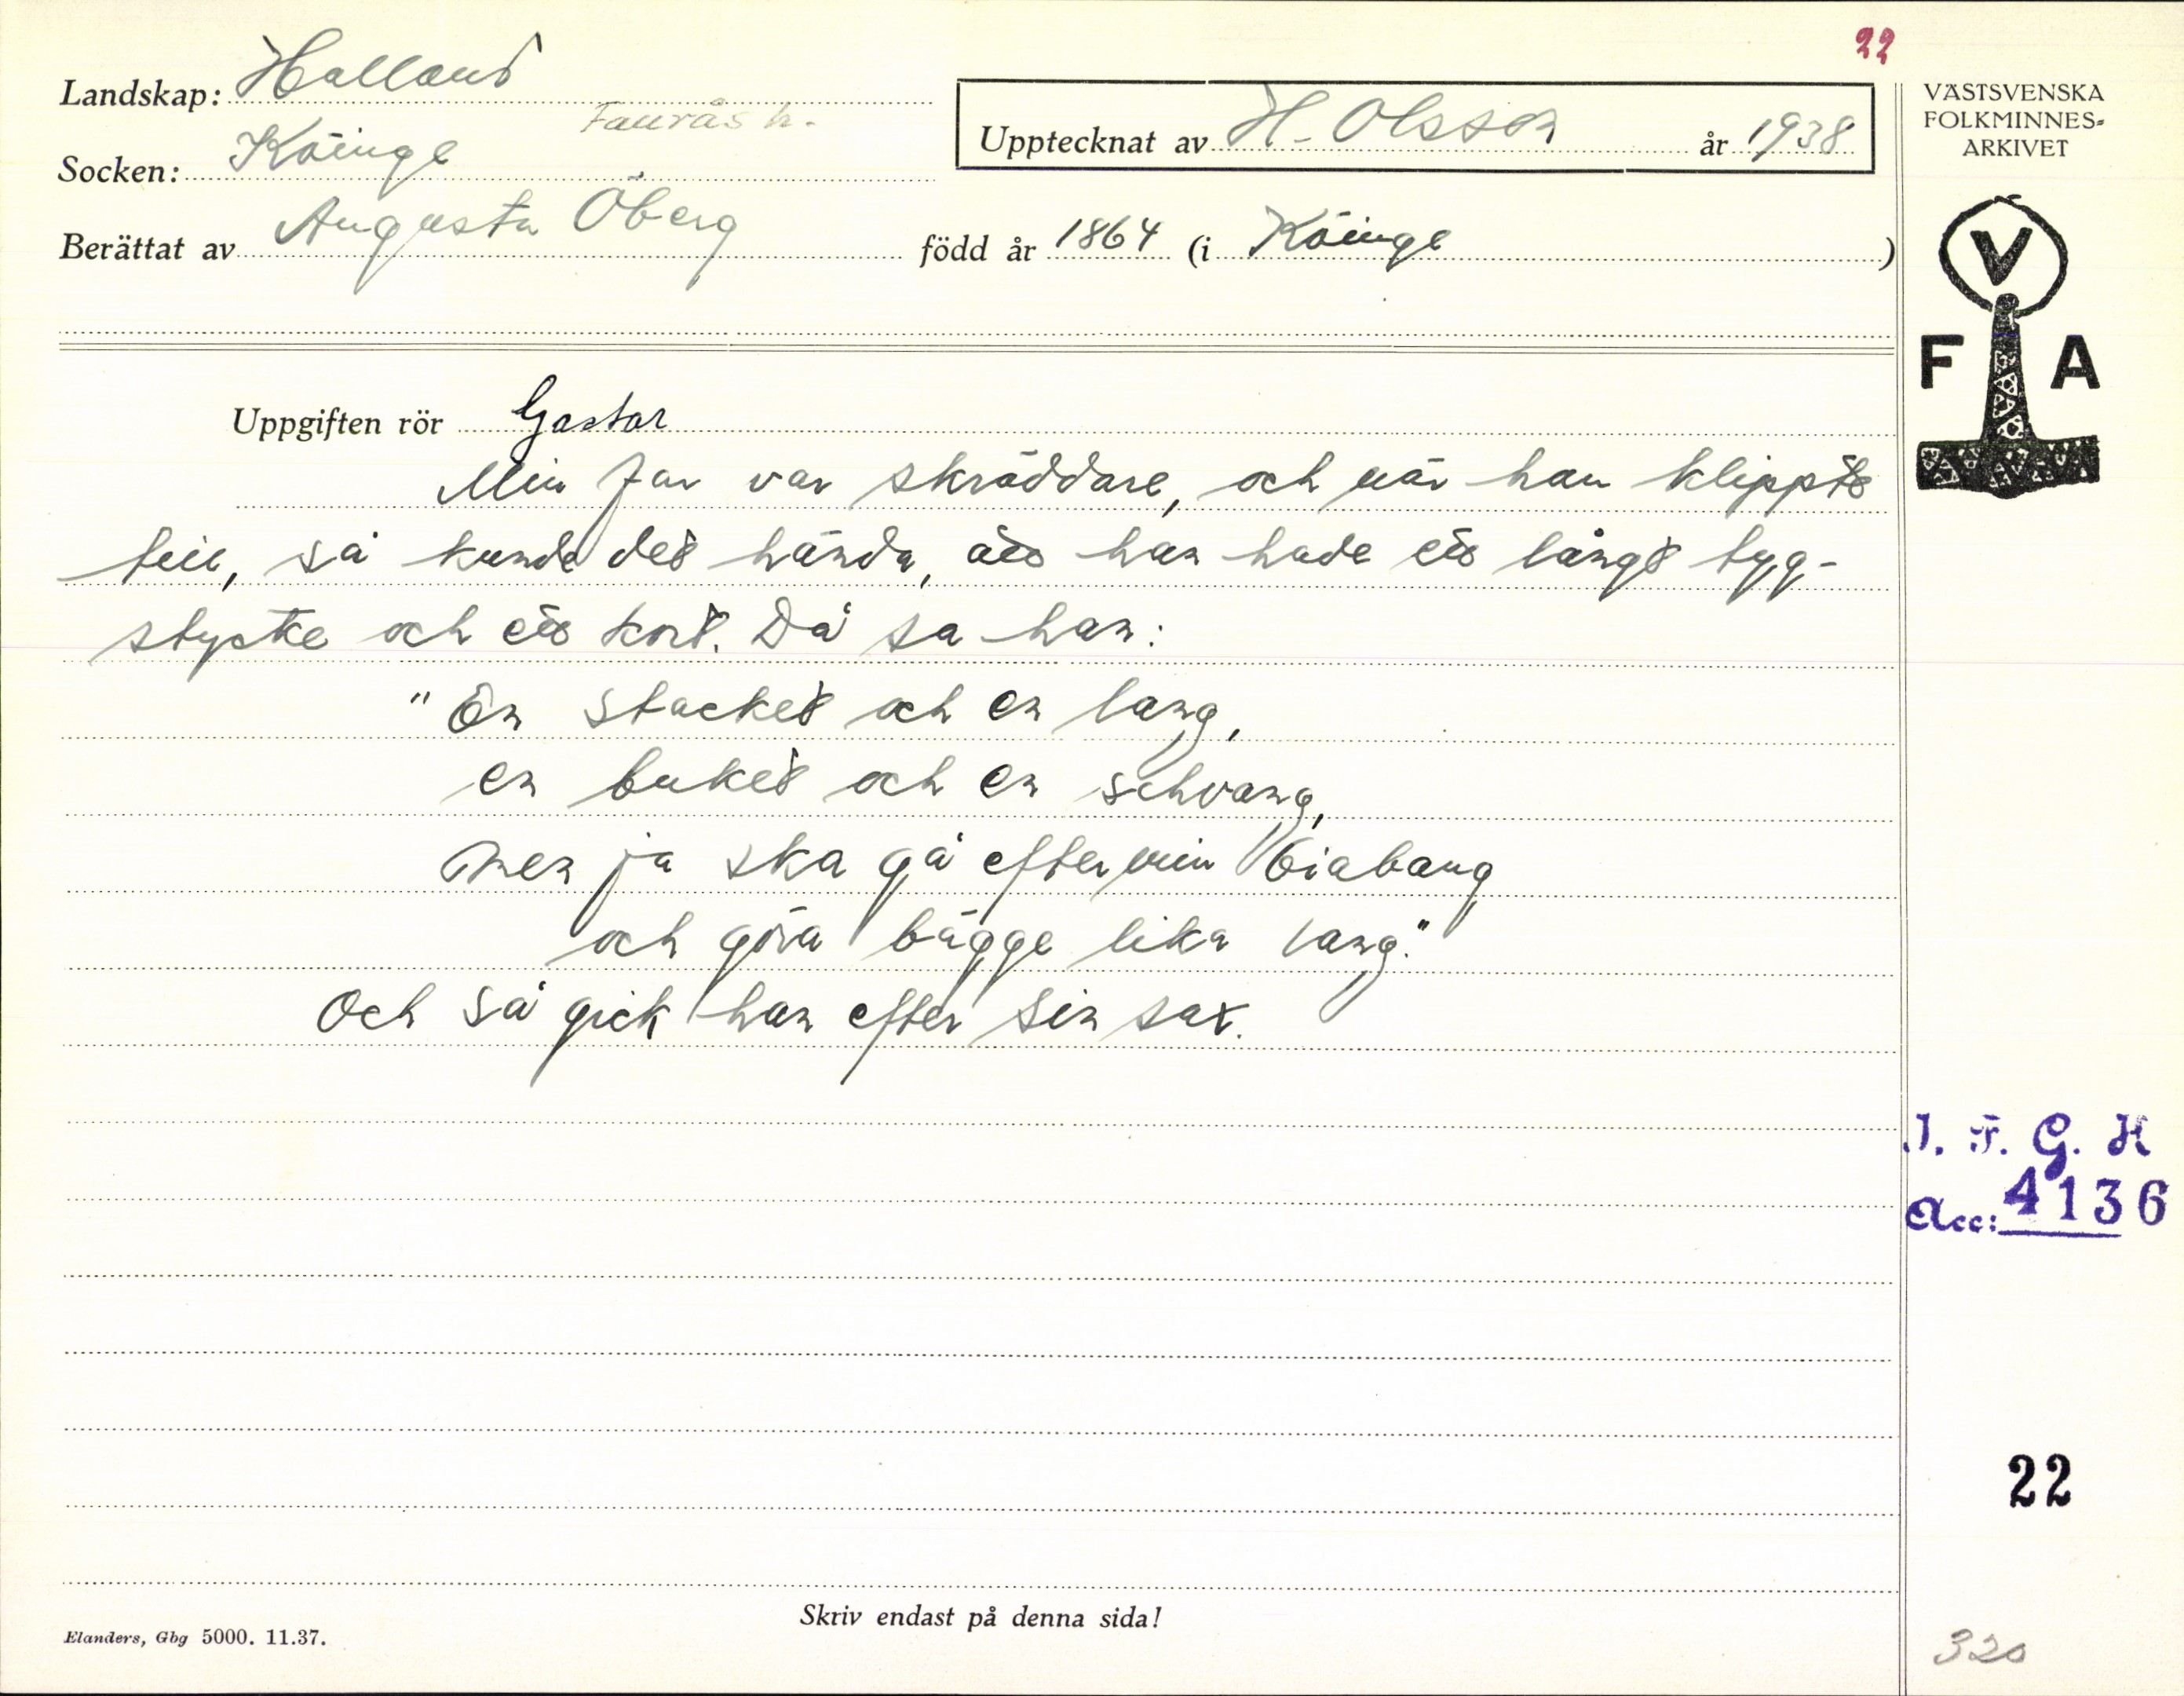 22
Landskap: Halland
Faurås h.
Socken: Köinge
Upptecknat av H. Olsson år 1938
VÄSTSVENSKA
FOLKMINNES-
ARKIVET
Berättat av Augusta Öberg född år 1864 (i Köinge)
V
F A
Uppgiften rör Gastar
Min far var skräddare, och när han klippte
teil, så kunde det hända, att han hade ett långt tyg-
stycke och ett kort. Då sa han:
"En stacket och en lang,
en buket och en schvang,
men ja ska gå efter min biabang
och göra bägge lika lang."
Och så gick han efter sin sax.
I. F. G. H
Acc: 4136
22
Skriv endast på denna sida!
Elanders, Gbg 5000. 11.37.
320